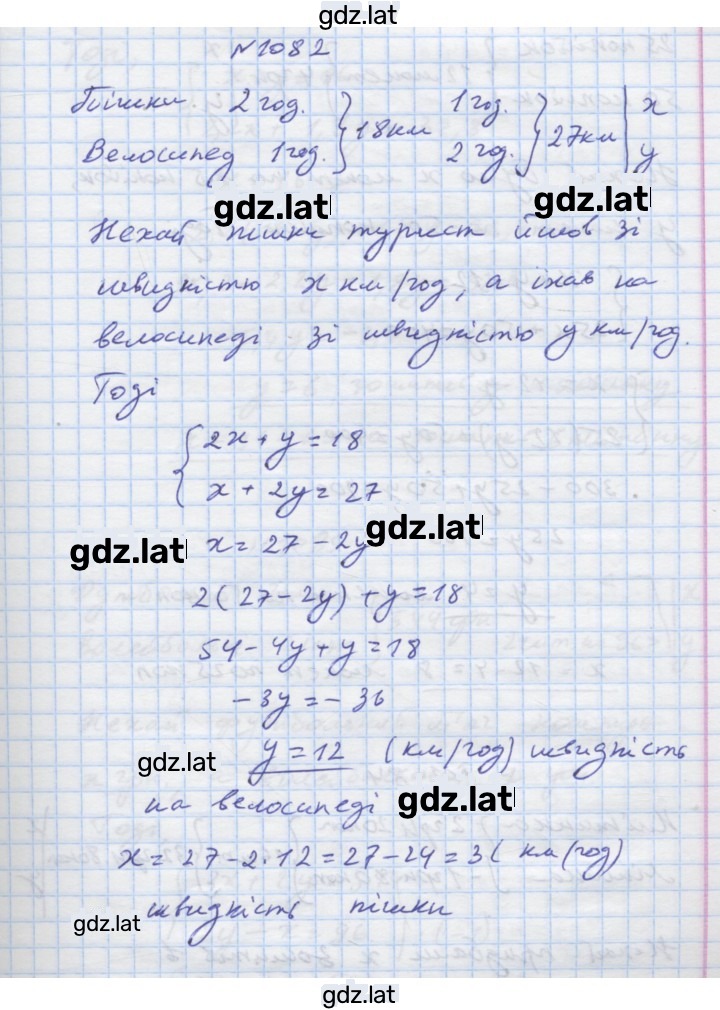 gdz.lat
№1082
Пішки. 2 год. } 18 км 1 год. } 27 км | x
Велосипед 1 год. 2 год. y
gdz.lat gdz.lat
Нехай пішки турист йшов зі
швидкістю x км/год, а їхав на
велосипеді зі швидкістю y км/год.
Тоді
{ 2x + y = 18
x + 2y = 27
gdz.lat x = 27 - 2y gdz.lat
2(27 - 2y) + y = 18
54 - 4y + y = 18
-3y = -36
gdz.lat y = 12 (км/год) швидкість
на велосипеді gdz.lat
x = 27 - 2·12 = 27 - 24 = 3 (км/год)
gdz.lat швидкість пішки
gdz.lat